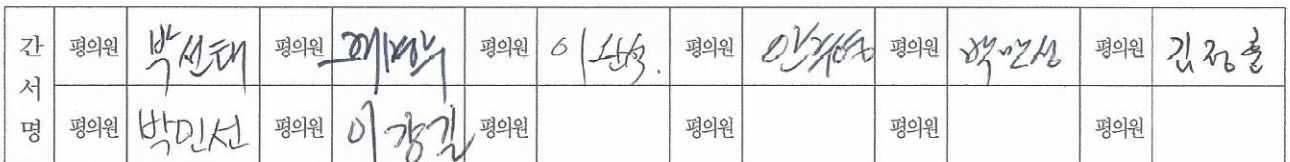 간 평의원 박선태 평의원 평의원 평의원 평의원 평의원 김정훈
서
명 평의원 박민선 평의원 이강길 평의원 평의원 평의원 평의원